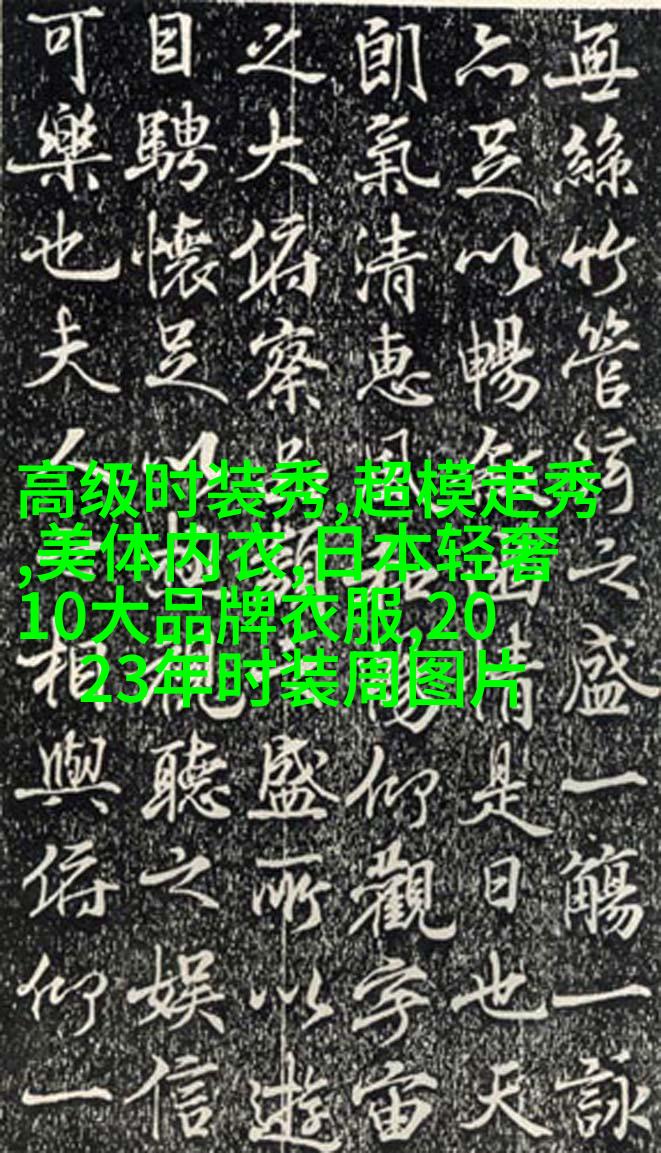 無絲竹管絃之盛一觴一詠
亦足以暢敘幽情是日也天
朗氣清惠風和暢仰觀宇宙
之大俯察品類之盛所以遊
目騁懷足以極視聽之娛信
可樂也夫人之相與俯仰一
高级时装秀,超模走秀
,美体内衣,日本轻奢
10大品牌衣服,20
23年时装周图片